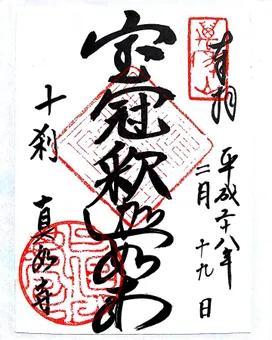 奉拝
平成廿八年
二月十九日
宝冠釈迦如来
十刹
真如寺